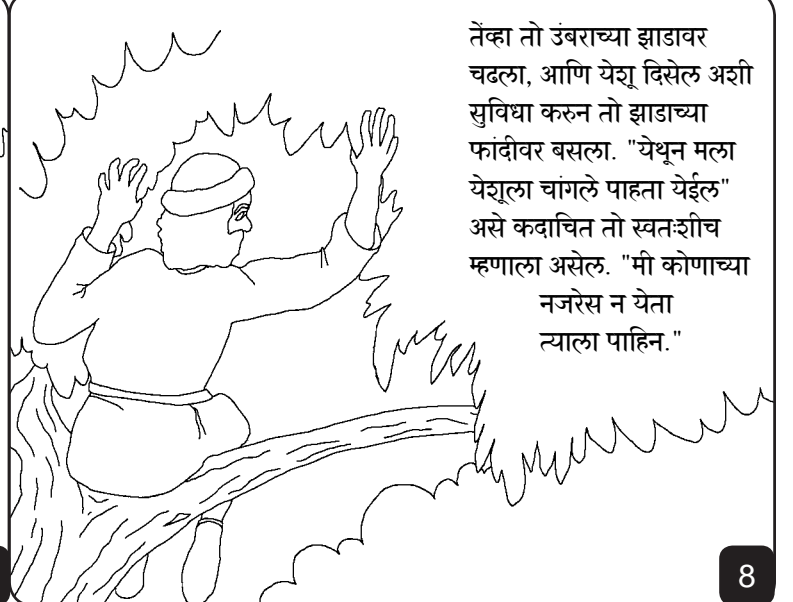 तेंव्हा तो उंबराच्या झाडावर
चढला, आणि येशू दिसेल अशी
सुविधा करुन तो झाडाच्या
फांदीवर बसला. "येथून मला
येशूला चांगले पाहता येईल"
असे कदाचित तो स्वतःशीच
म्हणाला असेल. "मी कोणाच्या
नजरेस न येता
त्याला पाहिन."
8